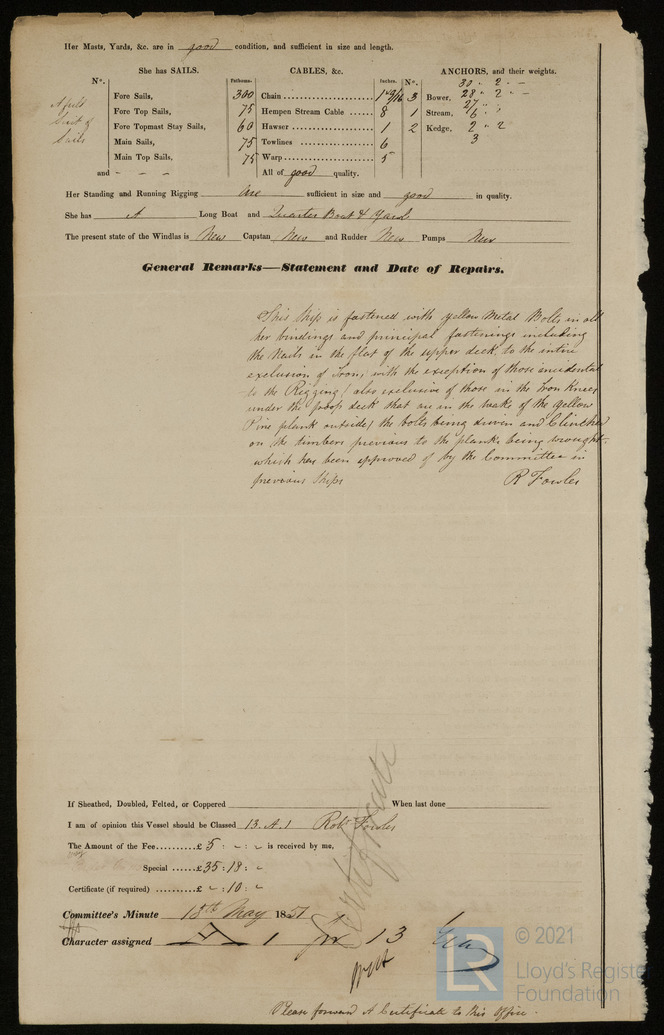 Her Masts, Yards, &c. are in good condition, and sufficient in size and length.
She has SAILS.
No.
A full
Suit of
Sails
Fore Sails,
Fore Top Sails,
Fore Topmast Stay Sails,
Main Sails,
Main Top Sails,
and
CABLES, &c.
Fathoms. Inches.
300 Chain 1 13/16
75 Hempen Stream Cable 8
60 Hawser 1
75 Towlines 6
75 Warp 5
All of good quality.
ANCHORS, and their weights.
No.
3 Bower, 30 " 2 " -
28 " 2 " -
27 " "
1 Stream, 6 " "
2 Kedge, 2 " 2
3
Her Standing and Running Rigging are sufficient in size and good in quality.
She has A Long Boat and Quarter Boat & Yawl
The present state of the Windlas is New Capstan New and Rudder New Pumps New
General Remarks—Statement and Date of Repairs.
This Ship is fastened with yellow Metal Bolts in all
her bindings and principal fastenings including
the Nails in the flat of the upper deck, to the entire
exclusion of Iron, with the exception of those incidental
to the Rigging / also exclusive of those in the Iron Knees
under the poop deck that are in the wake of the yellow
Pine plank outside / the bolts being driven and Clinched
on the timbers previous to the planks being wrought
which has been approved of by the Committee in
previous Ships
R Fowles
If Sheathed, Doubled, Felted, or Coppered When last done
I am of opinion this Vessel should be Classed 13. A. 1 Robt Fowles
The Amount of the Fee £ 5 : - : - is received by me,
Special £ 35 : 18 : -
Certificate (if required) £ - : 10 : -
Certificate
Committee's Minute 13th May 1851
Character assigned A 1 for 13
Please forward A Certificate to this Office.
LR
© 2021
Lloyd's Register
Foundation